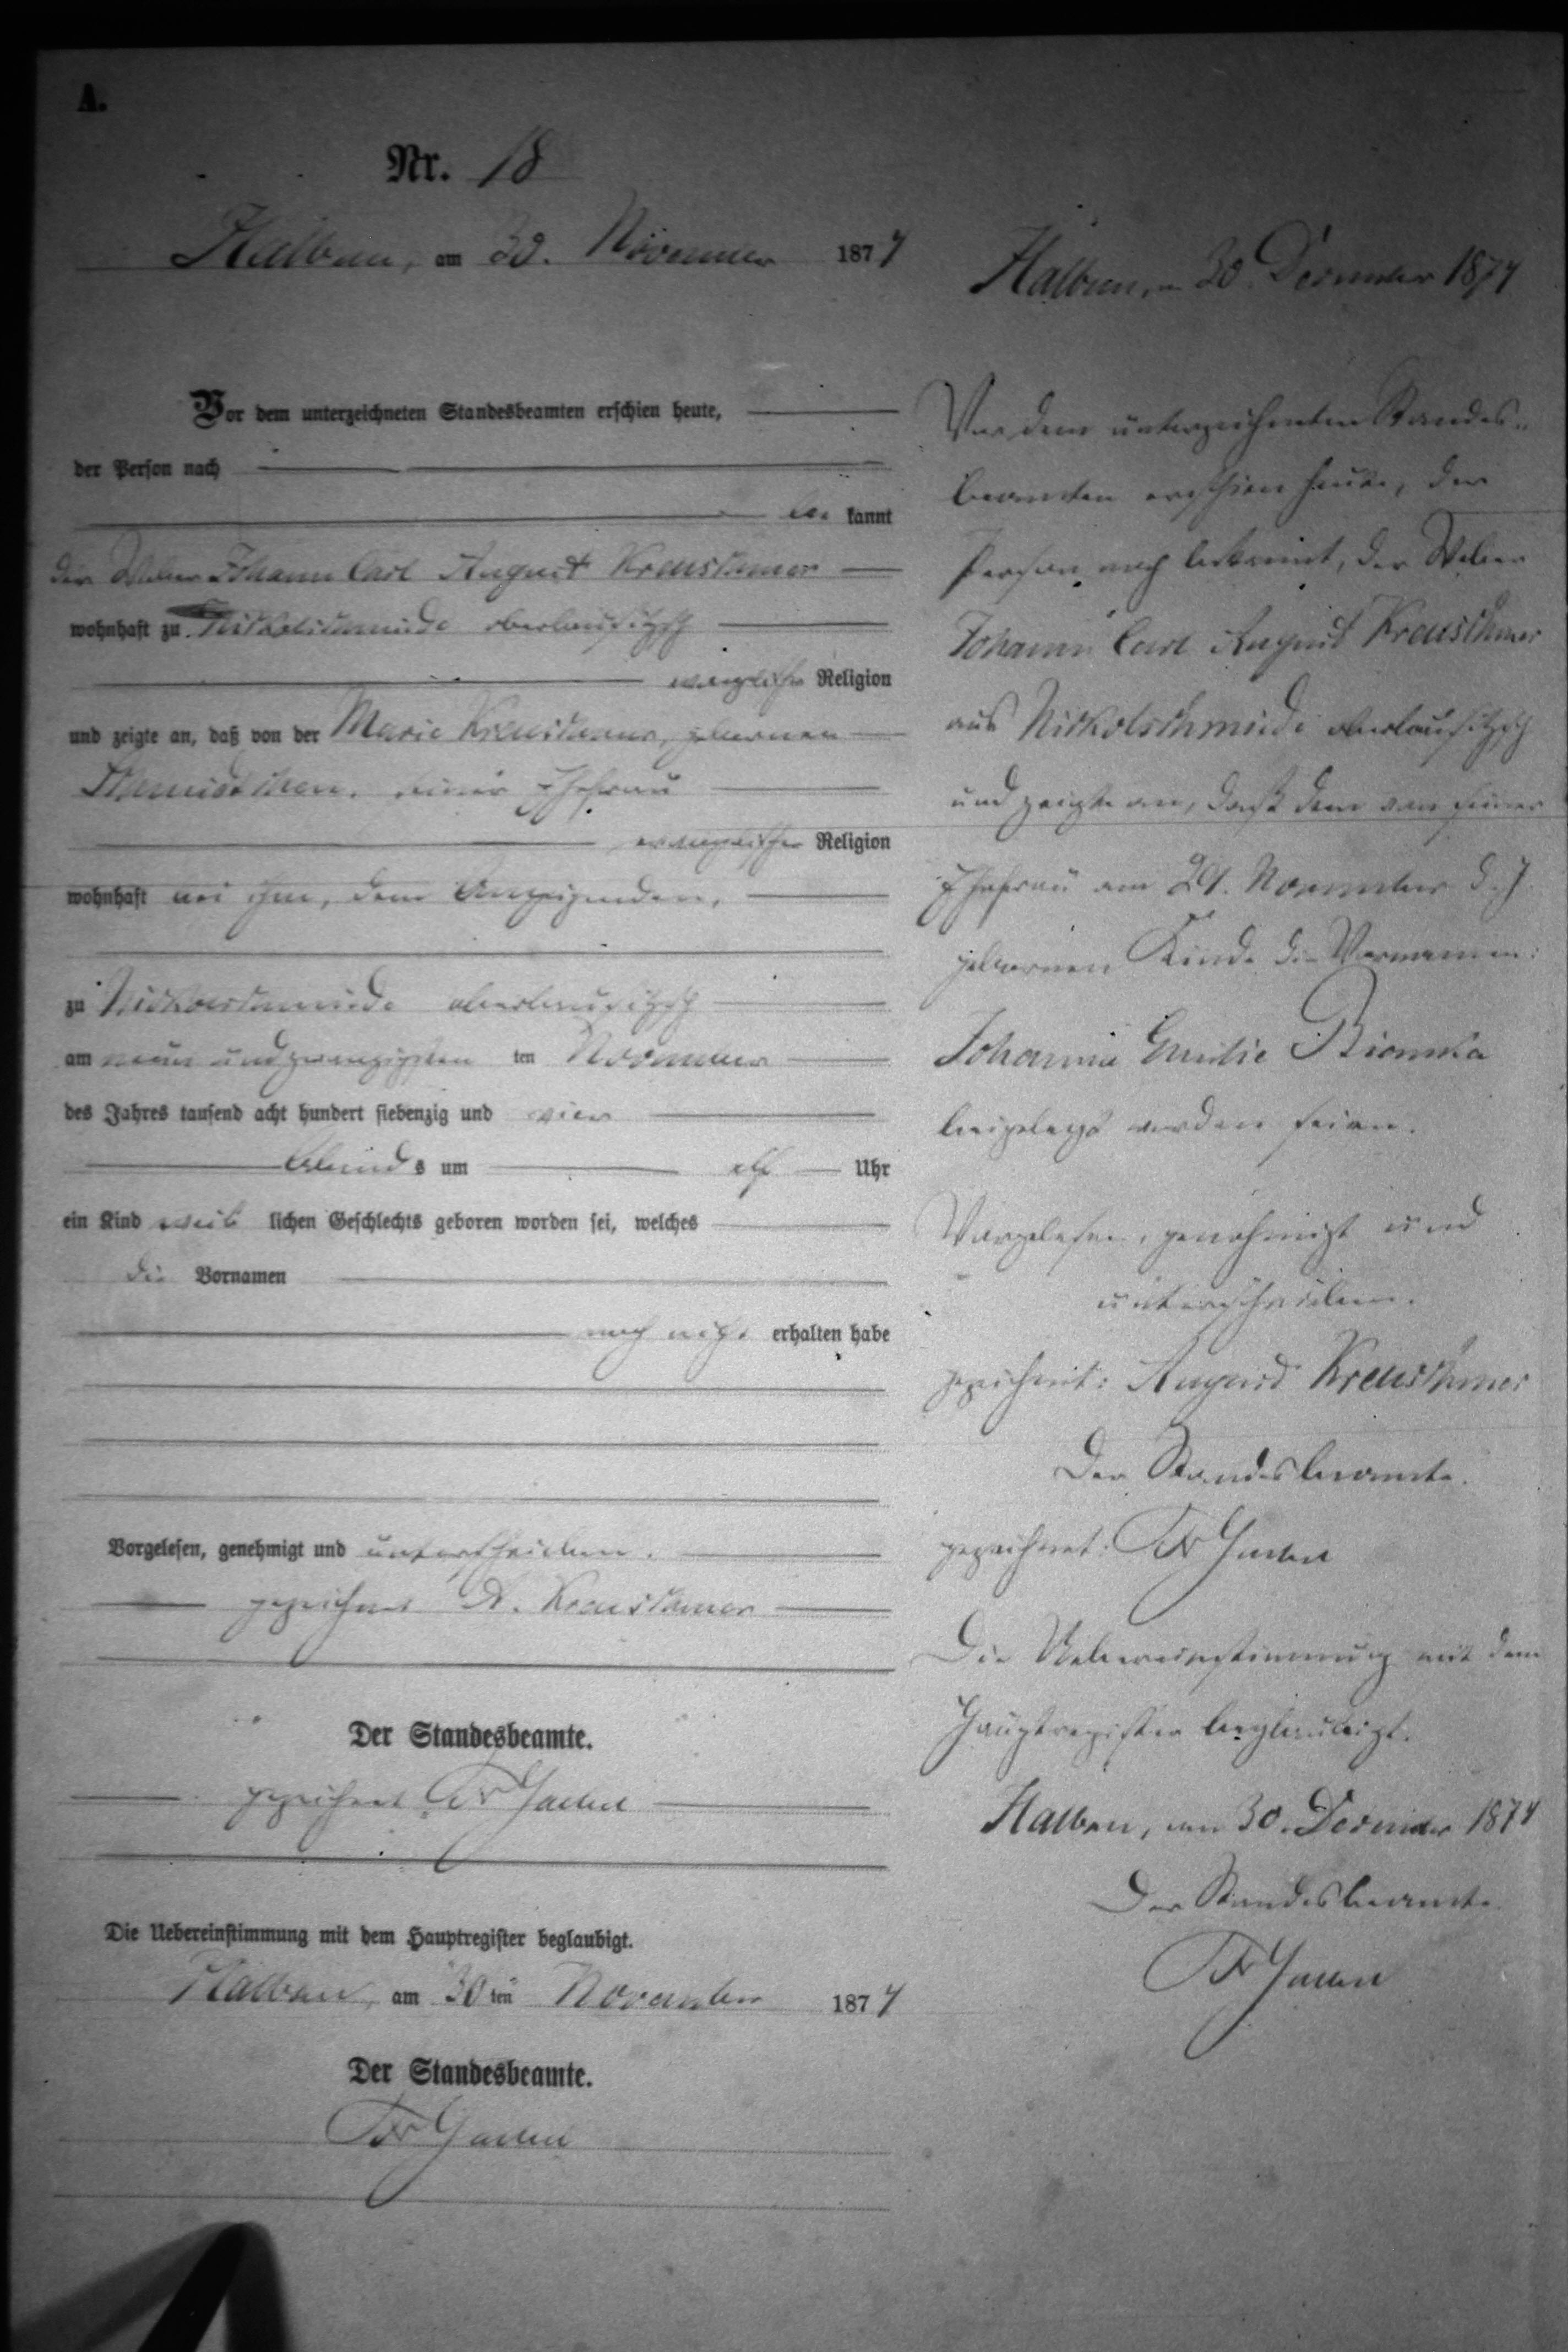 A.
Nr. 18
Halbau, am 30. November 1874
Vor dem unterzeichneten Standesbeamten erschien heute,
der Person nach
be kannt
der Weber Johann Carl August Kreuschmer
wohnhaft zu Nikolschmiede oberlausitzsch
evangelischer Religion
und zeigte an, daß von der Marie Kreuschmer, geborenen
seiner Ehefrau
evangelischer Religion
wohnhaft bei ihm, dem Anzeigenden,
zu Nikolschmiede oberlausitzsch
am neun und zwanzigsten ten November
des Jahres tausend acht hundert siebenzig und vier
Abends um elf Uhr
ein Kind weib lichen Geschlechts geboren worden sei, welches
die Vornamen
noch nicht erhalten habe
Vorgelesen, genehmigt und unterschrieben.
gezeichnet A. Kreuschmer
Der Standesbeamte.
gezeichnet Fr
Die Uebereinstimmung mit dem Hauptregister beglaubigt.
Halbau, am 30 ten November 1874
Der Standesbeamte.
Fr
Halbau, am 30. Dezember 1874
Vor dem unterzeichneten Standes-
beamten erschien heute, der
Person nach bekannt, der Weber
Johann Carl August Kreuschmer
aus Nikolschmiede oberlausitzsch
und zeigte an, daß dem von seiner
Ehefrau am 29. November d. J.
geborenen Kinde die Vornamen:
Johanna Emilie Bianka
beigelegt worden seien.
Vorgelesen, genehmigt und
unterschrieben.
gezeichnet: August Kreuschmer
Der Standesbeamte.
gezeichnet: Fr
Die Uebereinstimmung mit dem
Hauptregister beglaubigt.
Halbau, am 30. Dezember 1874
Der Standesbeamte
Fr